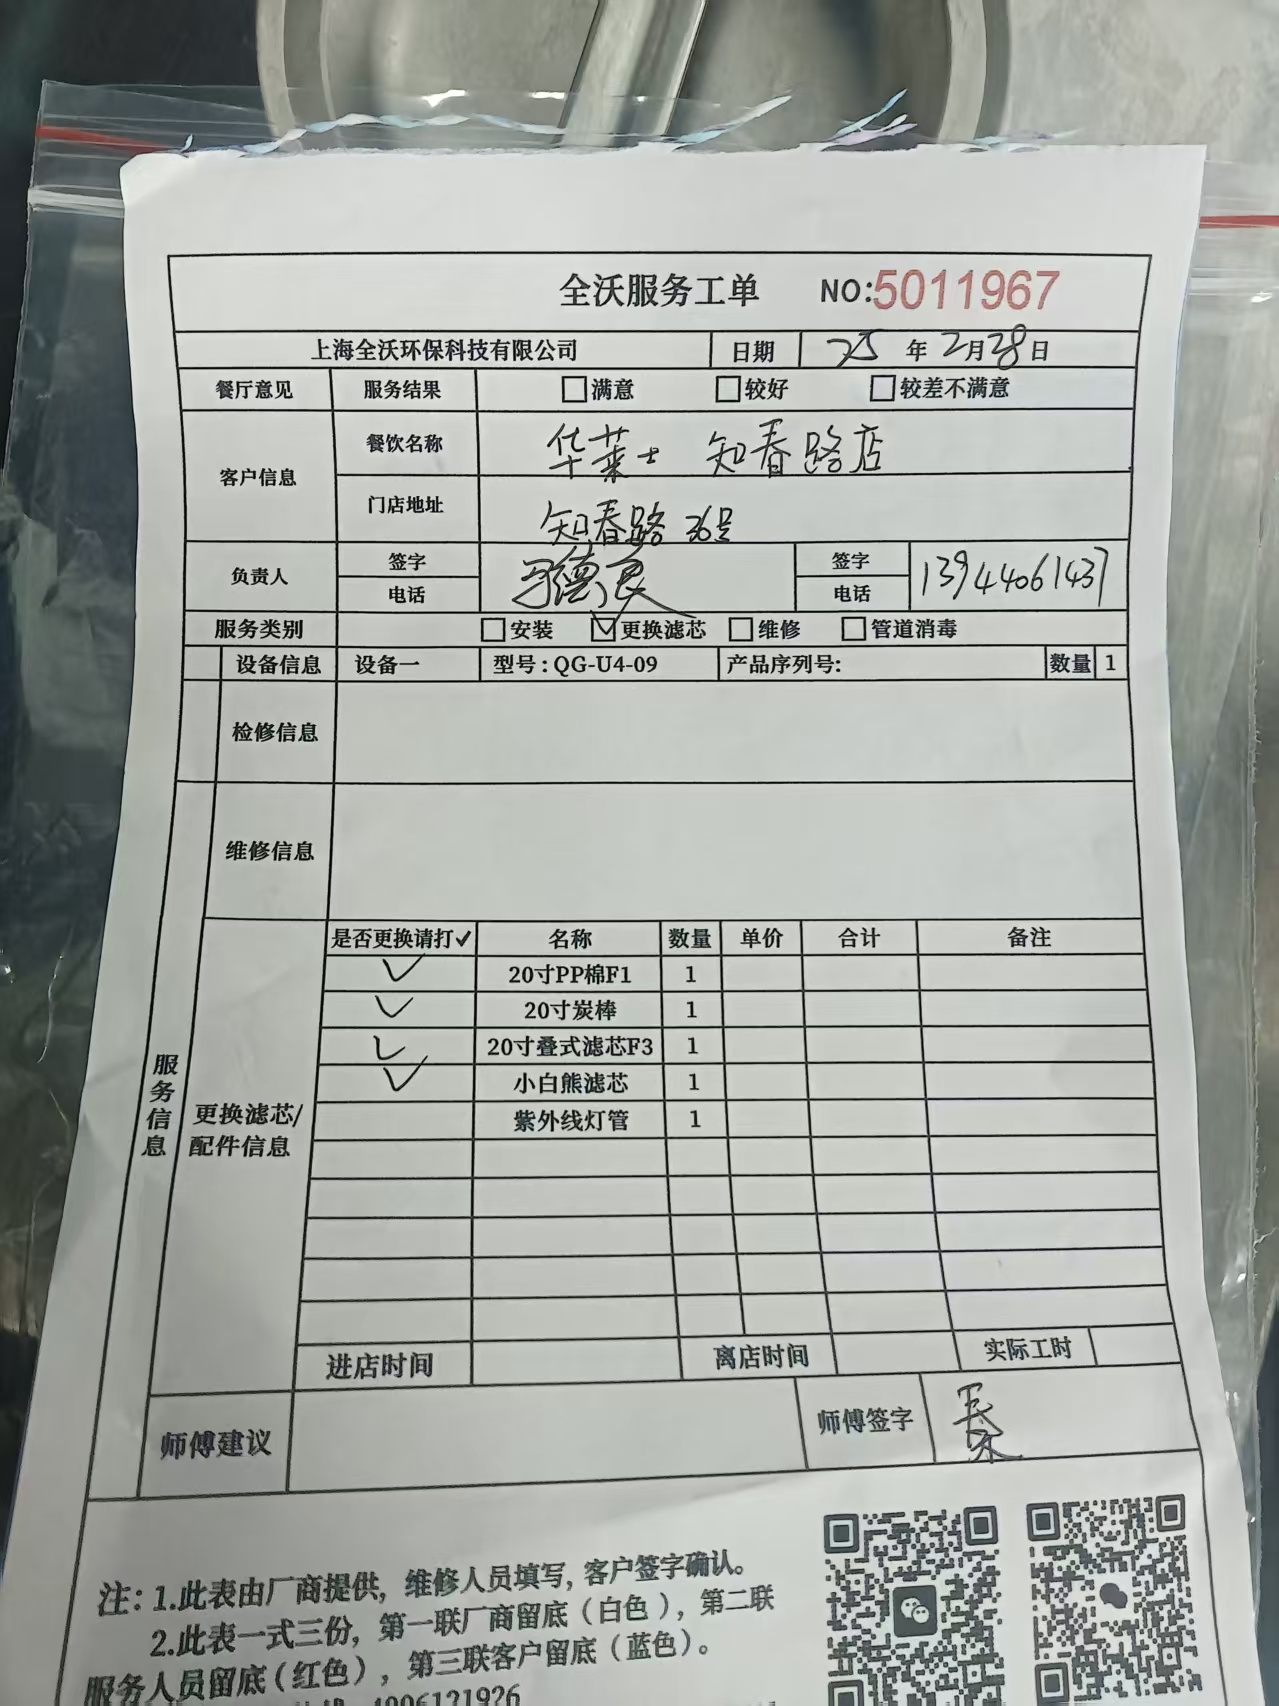 全沃服务工单 NO:5011967
上海全沃环保科技有限公司 日期 25 年 2 月 28 日
餐厅意见 服务结果 满意 较好 较差不满意
客户信息 餐饮名称 华莱士 知春路店
门店地址 知春路 36号
负责人 签字 签字
电话 德良 电话 13944061437
服务类别 安装 更换滤芯 维修 管道消毒
设备信息 设备一 型号:QG-U4-09 产品序列号: 数量 1
检修信息
维修信息
服务信息
更换滤芯/
配件信息
是否更换请打✓ 名称 数量 单价 合计 备注
✓ 20寸PP棉F1 1
✓ 20寸炭棒 1
✓ 20寸叠式滤芯F3 1
✓ 小白熊滤芯 1
紫外线灯管 1
进店时间 离店时间 实际工时
师傅建议 师傅签字
注:1.此表由厂商提供,维修人员填写,客户签字确认。
2.此表一式三份,第一联厂商留底(白色),第二联
服务人员留底(红色),第三联客户留底(蓝色)。
4006121926